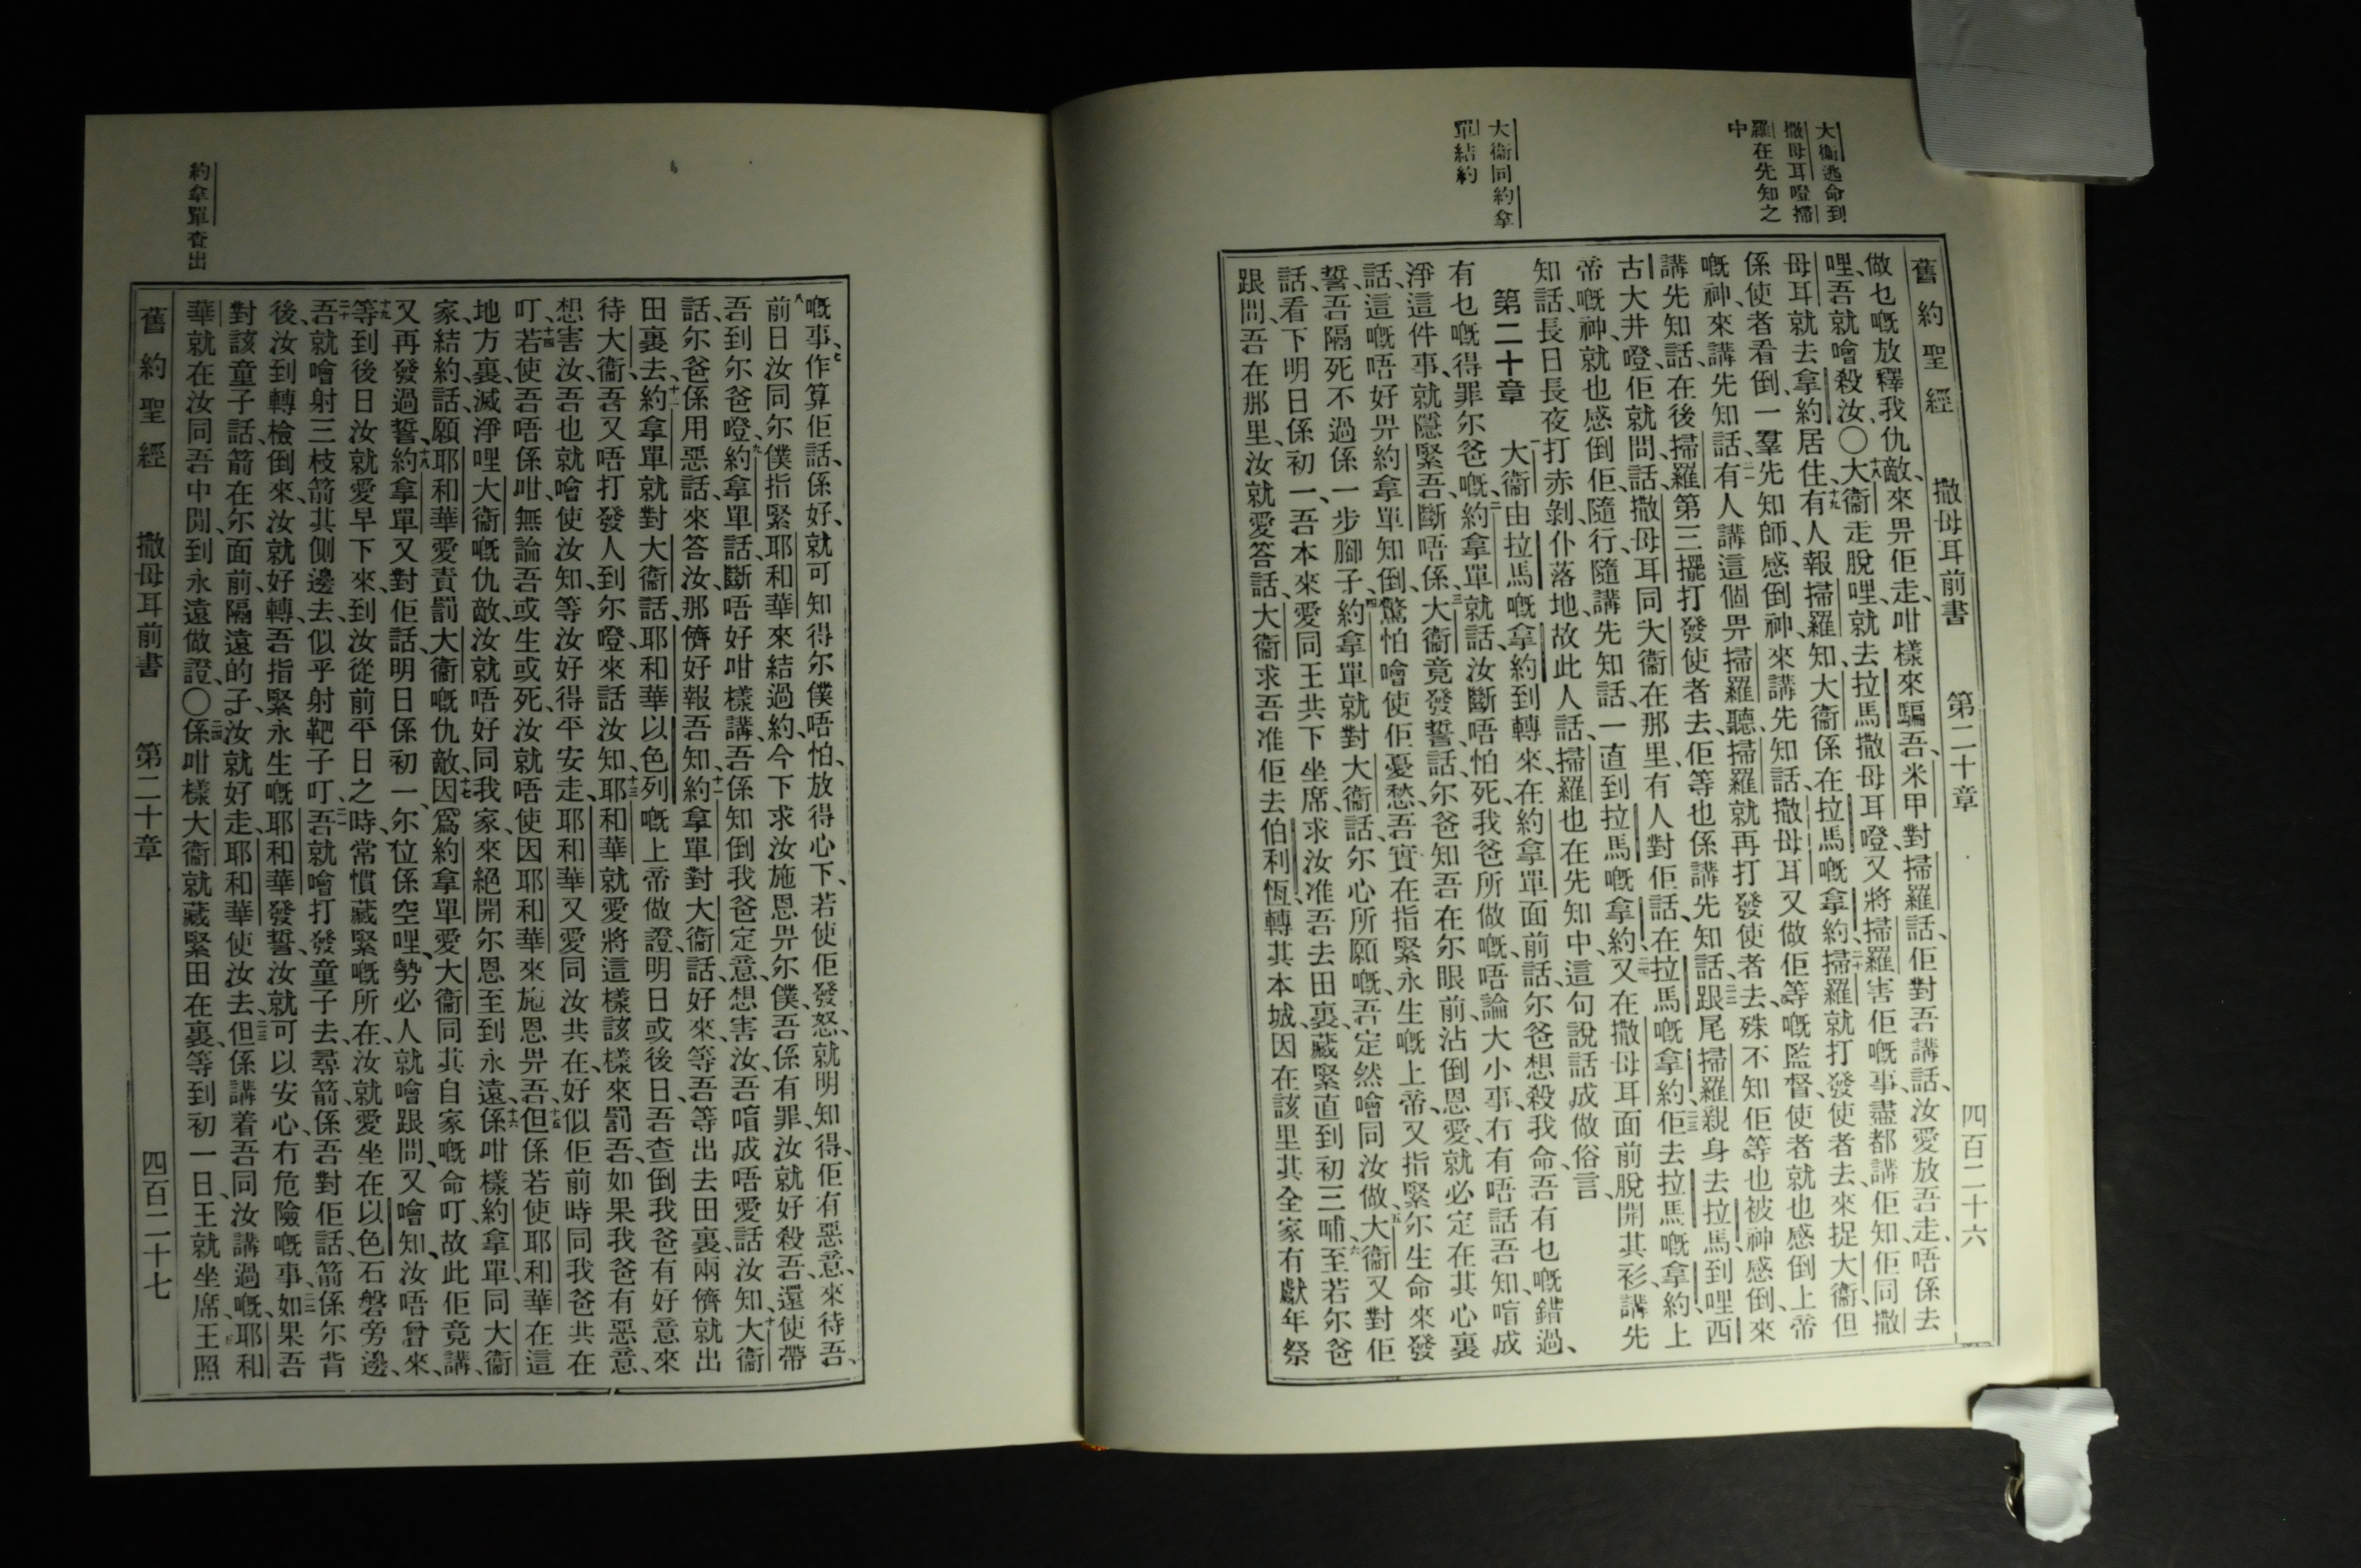 大衞逃命到
撒母耳嶝掃
羅在先知之
中
大衞同約拿
單結約
舊約聖經 撒母耳前書 第二十章 四百二十六
做乜嘅放釋我仇敵、來畀佢走、咁樣來騙吾、米甲對掃羅話、佢對吾講話、汝愛放吾走、唔係去
哩、吾就噲殺汝、〇十八大衞走脫哩、就去拉馬撒母耳嶝、又將掃羅害佢嘅事、盡都講佢知、佢同撒
母耳就去拿約居住、十九有人報掃羅知、大衞係在拉馬嘅拿約、二十掃羅就打發使者去、來捉大衞、但
係使者看倒、一羣先知師、感倒神、來講先知話、撒母耳又做佢等嘅監督、使者就也感倒上帝
嘅神、來講先知話、二一有人講這個畀掃羅聽、掃羅就再打發使者去、殊不知佢等也被神感倒、來
講先知話、在後掃羅第三擺打發使者去、佢等也係講先知話、二二跟尾掃羅親身去拉馬、到哩西
古大井嶝、佢就問話、撒母耳同大衞在那里、有人對佢話、在拉馬嘅拿約、二三佢去拉馬嘅拿約、上
帝嘅神、就也感倒佢、隨行、隨講、先知話、一直到拉馬嘅拿約、二四又在撒母耳面前、脫開其衫、講先
知話、長日長夜、打赤剝、仆落地、故此人話、掃羅也在先知中、這句說話、成做俗言、
第二十章 一大衞由拉馬嘅拿約到轉來、在約拿單面前話、尔爸想殺我命、吾有乜嘅錯過、
有乜嘅得罪尔爸嘅、二約拿單就話、汝斷唔怕死、我爸所做嘅、唔論大小事、冇有唔話吾知、喧成
淨這件事、就隱緊吾、斷唔係、三大衞竟發誓、話、尔爸知吾在尔眼前、沾倒恩愛、就必定在其心裏
話、這嘅唔好畀約拿單知倒、驚怕噲使佢憂愁、吾實在指緊永生嘅上帝、又指緊尔生命來發
誓、吾隔死不過係一步腳子、四約拿單就對大衞話、尔心所願嘅、吾定然噲同汝做、五大衞又對佢
話、看下明日係初一、吾本來愛同王共下坐席、求汝准吾去田裏、藏緊直到初三晡、六至若尔爸
跟問、吾在那里、汝就愛答話、大衞求吾准佢去伯利恆、轉其本城、因在該里其全家有獻年祭
約拿單查出
嘅事、七作算佢話、係好、就可知得尔僕唔怕、放得心下、若使佢發怒、就明知得、佢有惡意、來待吾、
八前日汝同尔僕、指緊耶和華來結過約、今下求汝施恩畀尔僕、吾係有罪、汝就好殺吾、還使帶
吾到尔爸嶝、九約拿單話、斷唔好咁樣講、吾係知倒我爸定意、想害汝、吾喧成唔愛話汝知、十大衞
話、尔爸係用惡話來答汝、那儕好報吾知、十一約拿單對大衞話、好來、等吾等出去田裏、兩儕就出
田裏去、十二約拿單就對大衞話、耶和華以色列嘅上帝做證、明日或後日、吾查倒我爸有好意來
待大衞、吾又唔打發人到尔嶝來話汝知、十三耶和華就愛將這樣該樣來罰吾、如果我爸有惡意、
想害汝、吾也就噲使汝知、等汝好得平安走、耶和華又愛同汝共在、好似佢前時同我爸共在
叮、十四若使吾唔係咁無論吾或生或死、汝就唔使因耶和華來施恩畀吾、十五但係若使耶和華在這
地方裏、滅淨哩大衞嘅仇敵、汝就唔好同我家、來絕開尔恩至到永遠、十六係咁樣約拿單、同大衞
家結約、話、願耶和華愛責罰大衞嘅仇敵、十七因爲約拿單愛大衞同其自家嘅命叮、故此佢竟講、
又再發過誓、十八約拿單又對佢話、明日係初一、尔位係空哩、勢必人就噲跟問、又噲知汝唔曾來、
十九等到後日、汝就愛早下來、到汝從前平日之時、常慣藏緊嘅所在、汝就愛坐在以色石磐旁邊、
二十吾就噲射三枝箭、其側邊去、似乎射靶子叮、二一吾就噲打發童子去、尋箭、係吾對佢話、箭係尔背
後、汝到轉檢倒來、汝就好轉、吾指緊永生嘅耶和華發誓、汝就可以安心、冇危險嘅事、二二如果吾
對該童子話、箭在尔面前、隔遠的子、汝就好走、耶和華使汝去、二三但係講着吾同汝講過嘅、耶和
華就在汝同吾中閒、到永遠做證、〇二四係咁樣大衞就藏緊田在裏、等到初一日、王就坐席、二五王照
舊約聖經 撒母耳前書 第二十章 四百二十七